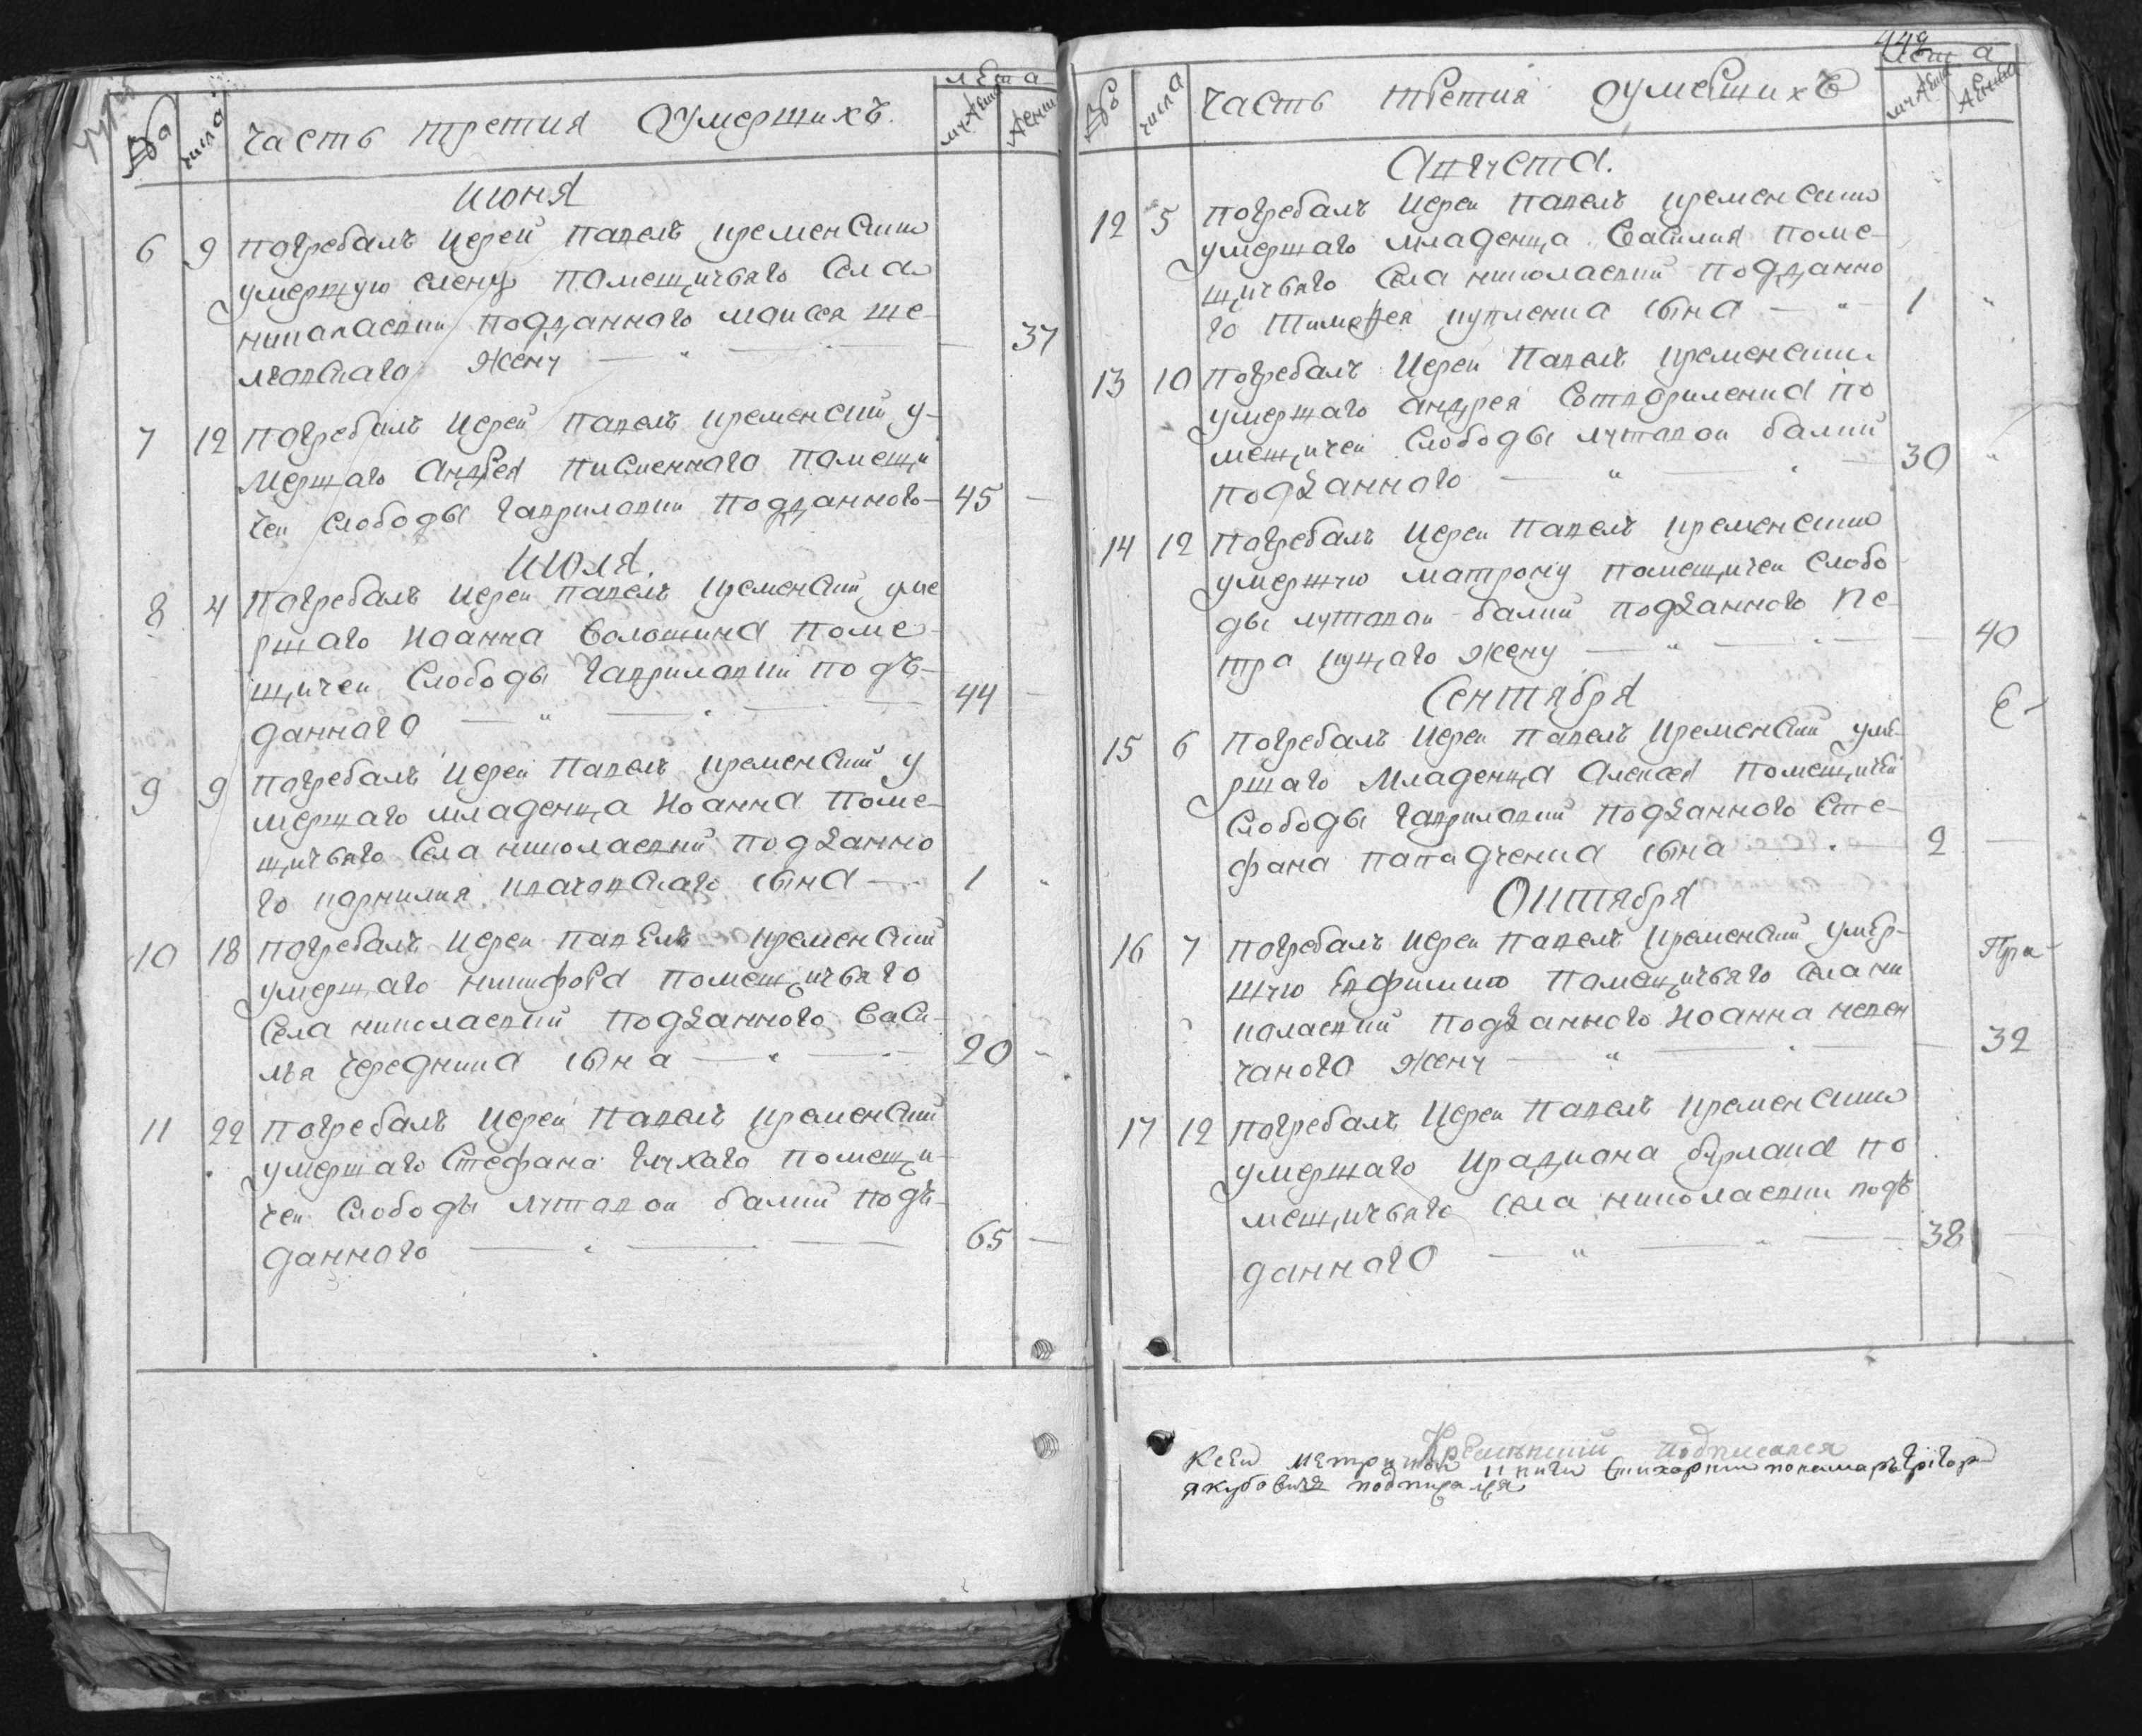 лета
№ба числа Часть третия Оумершихъ. мужеска женска
Июня
6 9 Погребалъ Иерей Павелъ Кременский
умершую Елену помещичьяго села
Николаевки подданного Моисея Ше
Жену — 37
7 12 Погребалъ Иерей Павелъ Кременский у-
мершаго Андрея Писменного помещи
чей слободы Гавриловки подданного — 45 —
Июля.
8 4 Погребалъ Иерей Павелъ Кременский уме
ршаго Иоанна Волошина поме-
щичей слободы Гавриловки подъ-
данного — 44 —
9 9 Погребалъ Иерей Павелъ Кременский у
мершаго младенца Иоанна поме-
щичьяго села Николаевки подданно
го Корнилия сына — 1
10 18 Погребалъ Иерей Павелъ Кременский
умершаго Никифора помещичьяго
села Николаевки подданного Васи-
лья Чередника сына — 20 -
11 22 Погребалъ Иерей Павелъ Кременский
умершаго Стефана Глухаго помещи-
чей слободы Лутовой балки подъ-
данного — 65 —
442
лета
№бо числа Часть третия Оумершихъ мужеска женска
Августа.
12 5 Погребалъ Иерей Павелъ Кременский
умершаго младенца Василия поме-
щичьяго села Николаевки подданно
го Тимофея сына — 1 "
13 10 Погребалъ Иерей Павелъ Кременский
умершаго Андрея по
мещичей слободы Лутовой балки
подданного — 30 "
14 12 Погребалъ Иерей Павелъ Кременский
умершую Матрону помещичей слобо
ды Лутовой балки подданного Пе-
тра Куцаго Жену — 40
Сентября
15 6 Погребалъ Иерей Павелъ Кременский уме-
ршаго младенца Алексея помещичей
слободы Гавриловки подданного Сте-
фана Пападченка сына — 2 —
Октября
16 7 Погребалъ Иерей Павелъ Кременский умер-
шую Евфимию помещичьяго села Ни
колаевки подданного Иоанна Невен
чаного Жену — 32
17 12 Погребалъ Иерей Павелъ Кременский
умершаго Ирадиона Бурлака по
мещичьяго села Николаевки подъ
данного — 38 —
Кременский подписался
Ксей метрической книги стихарный пономарь Григорий
Якубовичъ подписался